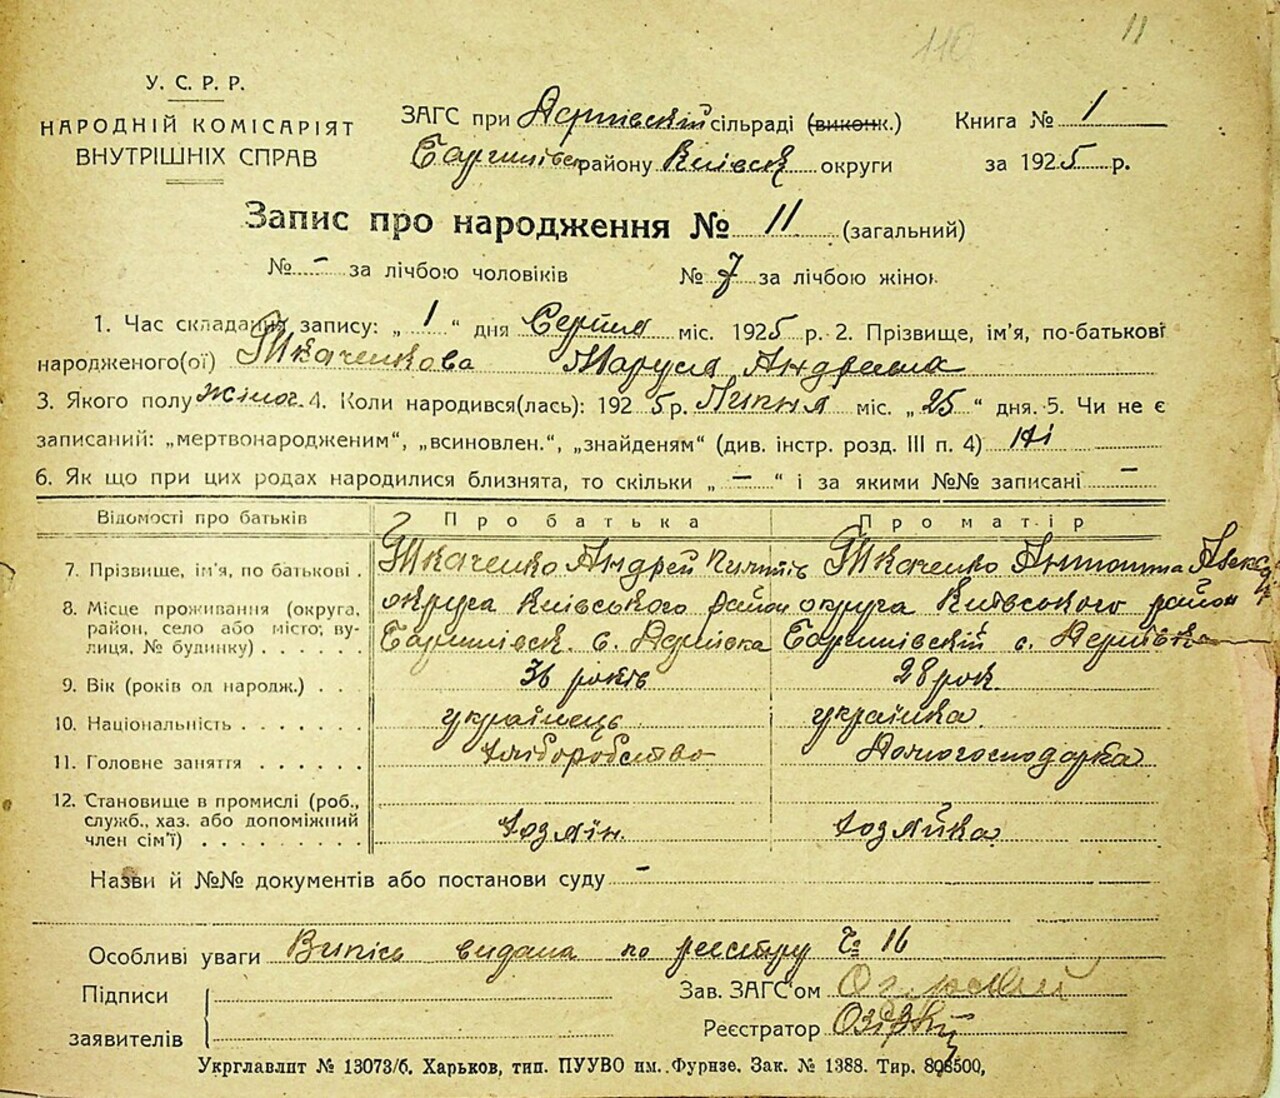 116
11
У. С. Р. Р.
НАРОДНІЙ КОМІСАРІЯТ
ВНУТРІШНІХ СПРАВ
ЗАГС при Дернівскій сільраді (виконк.)
Баришівськ району Київск округи
Книга № 1
за 1925 р.
Запис про народження № 11 (загальний)
№ - за лічбою чоловіків № 7 за лічбою жінок
1. Час складання запису: „ 1 “ дня Серпня міс. 1925 р. 2. Прізвище, ім'я, по-батькові
народженого(ої) Ткаченкова Маруся Андреева
3. Якого полу жіноч. 4. Коли народився(лась): 1925 р. Липня міс. „ 25 “ дня. 5. Чи не є
записаний: „мертвонародженим“, „всиновлен.“, „знайденям“ (див. інстр. розд. III п. 4) Ні
6. Як що при цих родах народилися близнята, то скільки „ - “ і за якими №№ записані -
Відомості про батьків Про батька Про матір
7. Прізвище, ім'я, по батькові . Ткаченко Андрей Ткаченко
8. Місце проживання (округа, район, село або місто; вулиця, № будинку) . . . . . .
округа Київського район округа Київського район
Баришівск. с. Дернівка Баришівскій с. Дернівка
9. Вік (років од народж.) . . . 36 років 28 рок.
10. Національність . . . . . . . українець українка
11. Головне заняття . . . . . . хліборобство Домогосподарка
12. Становище в промислі (роб., служб., хаз. або допоміжний член сім'ї) . . . . . . . . .
хозяїн. хозяйка
Назви й №№ документів або постанови суду -
Особливі уваги Випісь видана по реєстру № 16
Підписи
заявителів
Зав. ЗАГС'ом
Реєстратор
Укрглавлит № 13073/б. Харьков, тип. ПУУВО им. Фурнзе. Зак. № 1388. Тир. 808500,